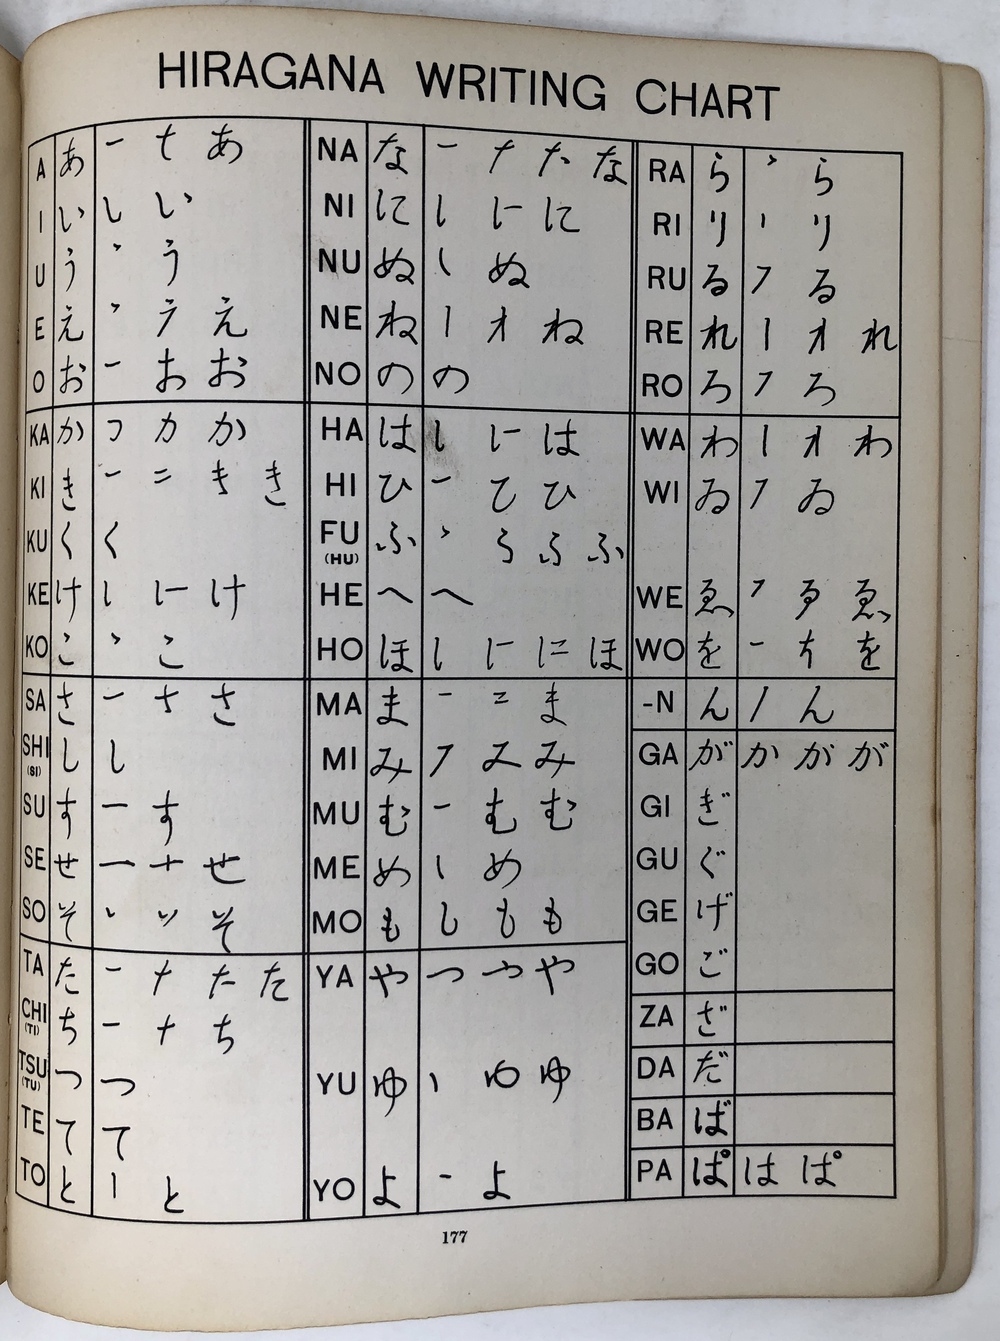 HIRAGANA WRITING CHART
A あ ー t あ
I い し い
U う ` う
E え ` ラ え
O お ー お お
KA か つ カ か
KI き ー 二 き き
KU く く
KE け l に け
KO こ ` こ
SA さ ー さ さ
SHI (SI) し し
SU す ー す
SE せ 一 十 せ
SO そ ヽ ソ そ
TA た ー ナ た た
CHI (TI) ち ー ナ ち
TSU (TU) つ つ
TE て て
TO と l と
NA な ー ナ た な
NI に l に に
NU ぬ ヽ ぬ
NE ね l オ ね
NO の の
HA は l に は
HI ひ ー ひ ひ
FU (HU) ふ ` ろ ふ ふ
HE へ へ
HO ほ l に に ほ
MA ま ー 二 ま
MI み ㇇ み み
MU む ー む む
ME め ヽ め
MO も し も も
YA や つ つ や
YU ゆ ヽ ゆ ゆ
YO よ ー よ
RA ら ` ら
RI り ヽ り
RU る ㇇ る
RE れ l オ れ
RO ろ ㇇ ろ
WA わ l オ わ
WI ゐ ㇇ ゐ
WE ゑ ㇇ る ゑ
WO を ー ち を
-N ん / ん
GA が か が が
GI ぎ
GU ぐ
GE げ
GO ご
ZA ざ
DA だ
BA ば
PA ぱ は ぱ
177